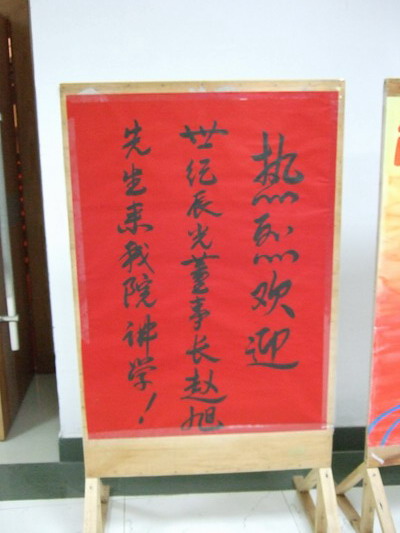 热烈欢迎
世纪辰光董事长赵旭
先生来我院讲学！